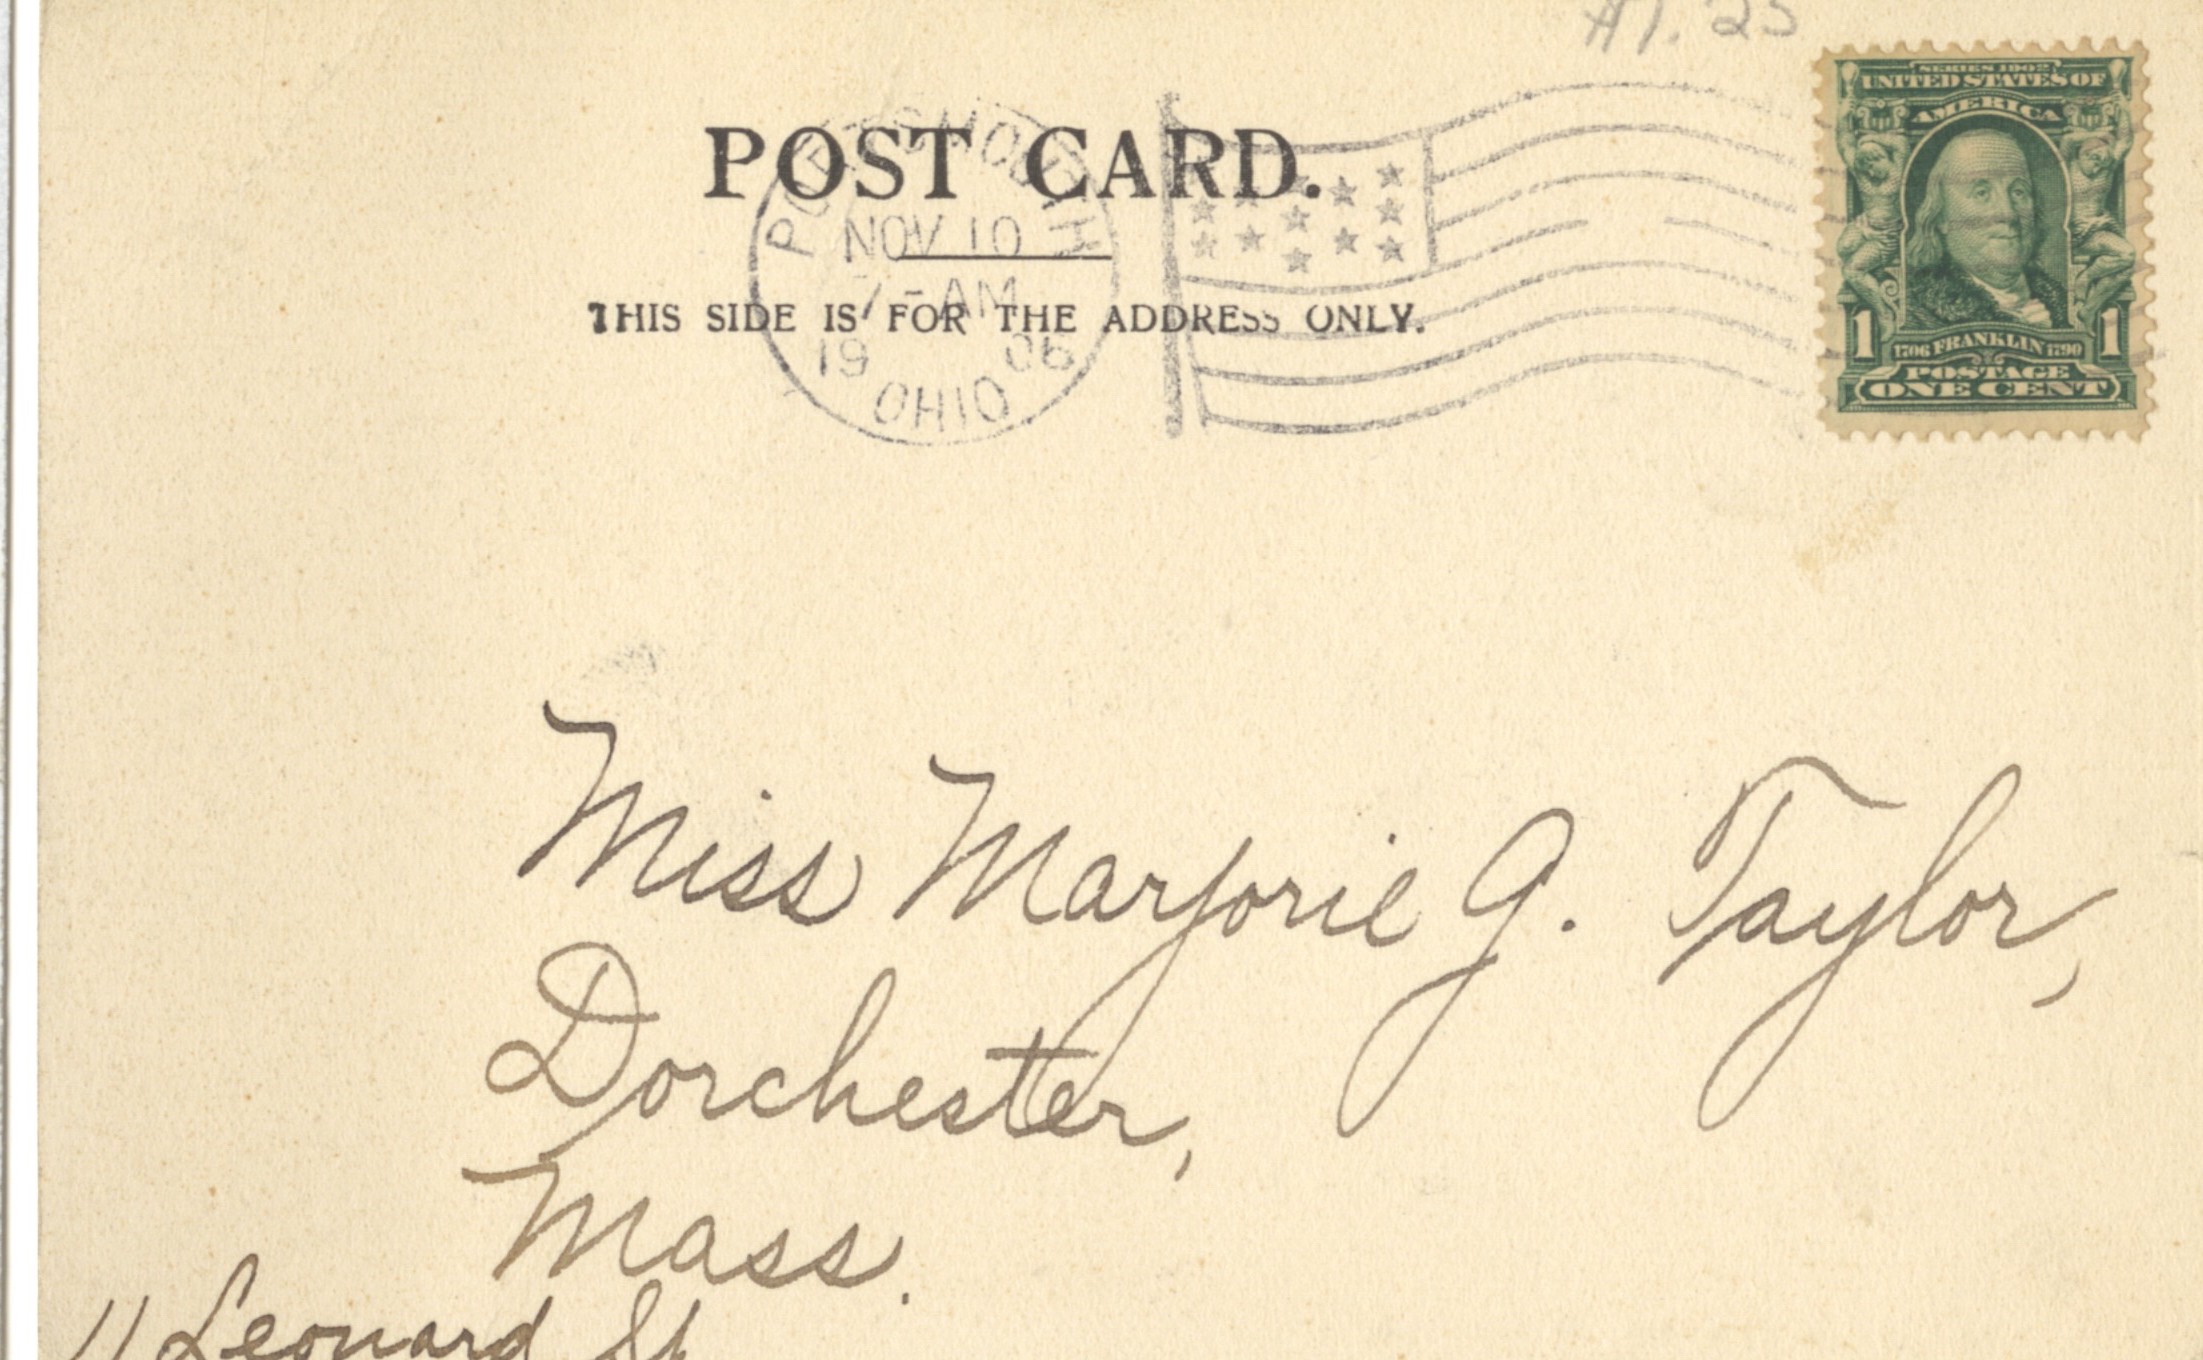 #1.25
SERIES 1902
UNITED STATES OF
AMERICA
1706 FRANKLIN 1790
1 1
POSTAGE
ONE CENT
POST CARD.
THIS SIDE IS FOR THE ADDRESS ONLY.
PORTSMOUTH
NOV 10
7-AM
1906
OHIO
Miss Marjorie G. Taylor,
Dorchester,
Mass.
11 Leonard St